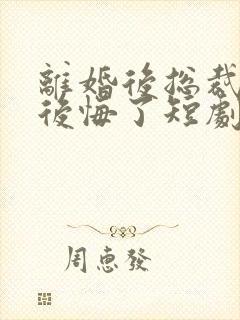 離婚後總裁
後悔了短劇
周惠發